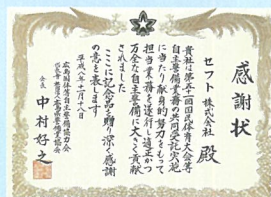 感謝状
セフト株式会社殿
貴社は第五十一回国民体育大会等
自主警備業務の共同受託実施
に当たり献身的努力をもって
担当業務を遂行し適正かつ
万全な自主警備に大きく貢献
されました
ここに記念品を贈り深く感謝
の意を表します
平成八年十月十八日
広島国体等自主警備協力
会長 中村好之